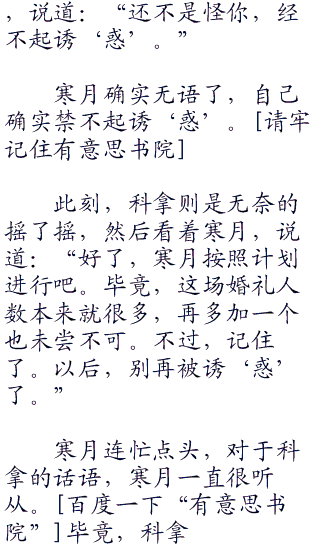 ，说道：“还不是怪你，经
不起诱‘惑’。”
寒月确实无语了，自己
确实禁不起诱‘惑’。[请牢
记住有意思书院]
此刻，科拿则是无奈的
摇了摇，然后看着寒月，说
道：“好了，寒月按照计划
进行吧。毕竟，这场婚礼人
数本来就很多，再多加一个
也未尝不可。不过，记住
了。以后，别再被诱‘惑’
了。”
寒月连忙点头，对于科
拿的话语，寒月一直很听
从。[百度一下“有意思书
院”]毕竟，科拿